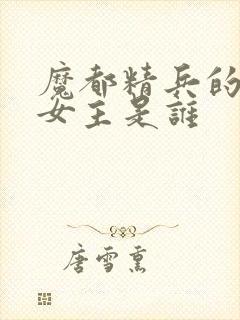 魔都精兵的
女主是誰
唐雪熏